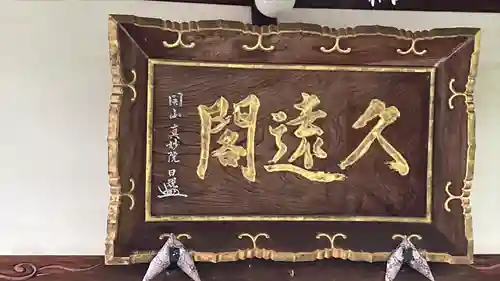 久遠閣
開山 真妙院 日